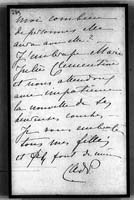 moi combien
de personnes elle
aura avec elle ?
J'embrasse Marie
Julie Clementine
et nous attendons
avec impatience
la nouvelle de ses
heureuses couches.
Je vous embrasse
tous mes filles
et